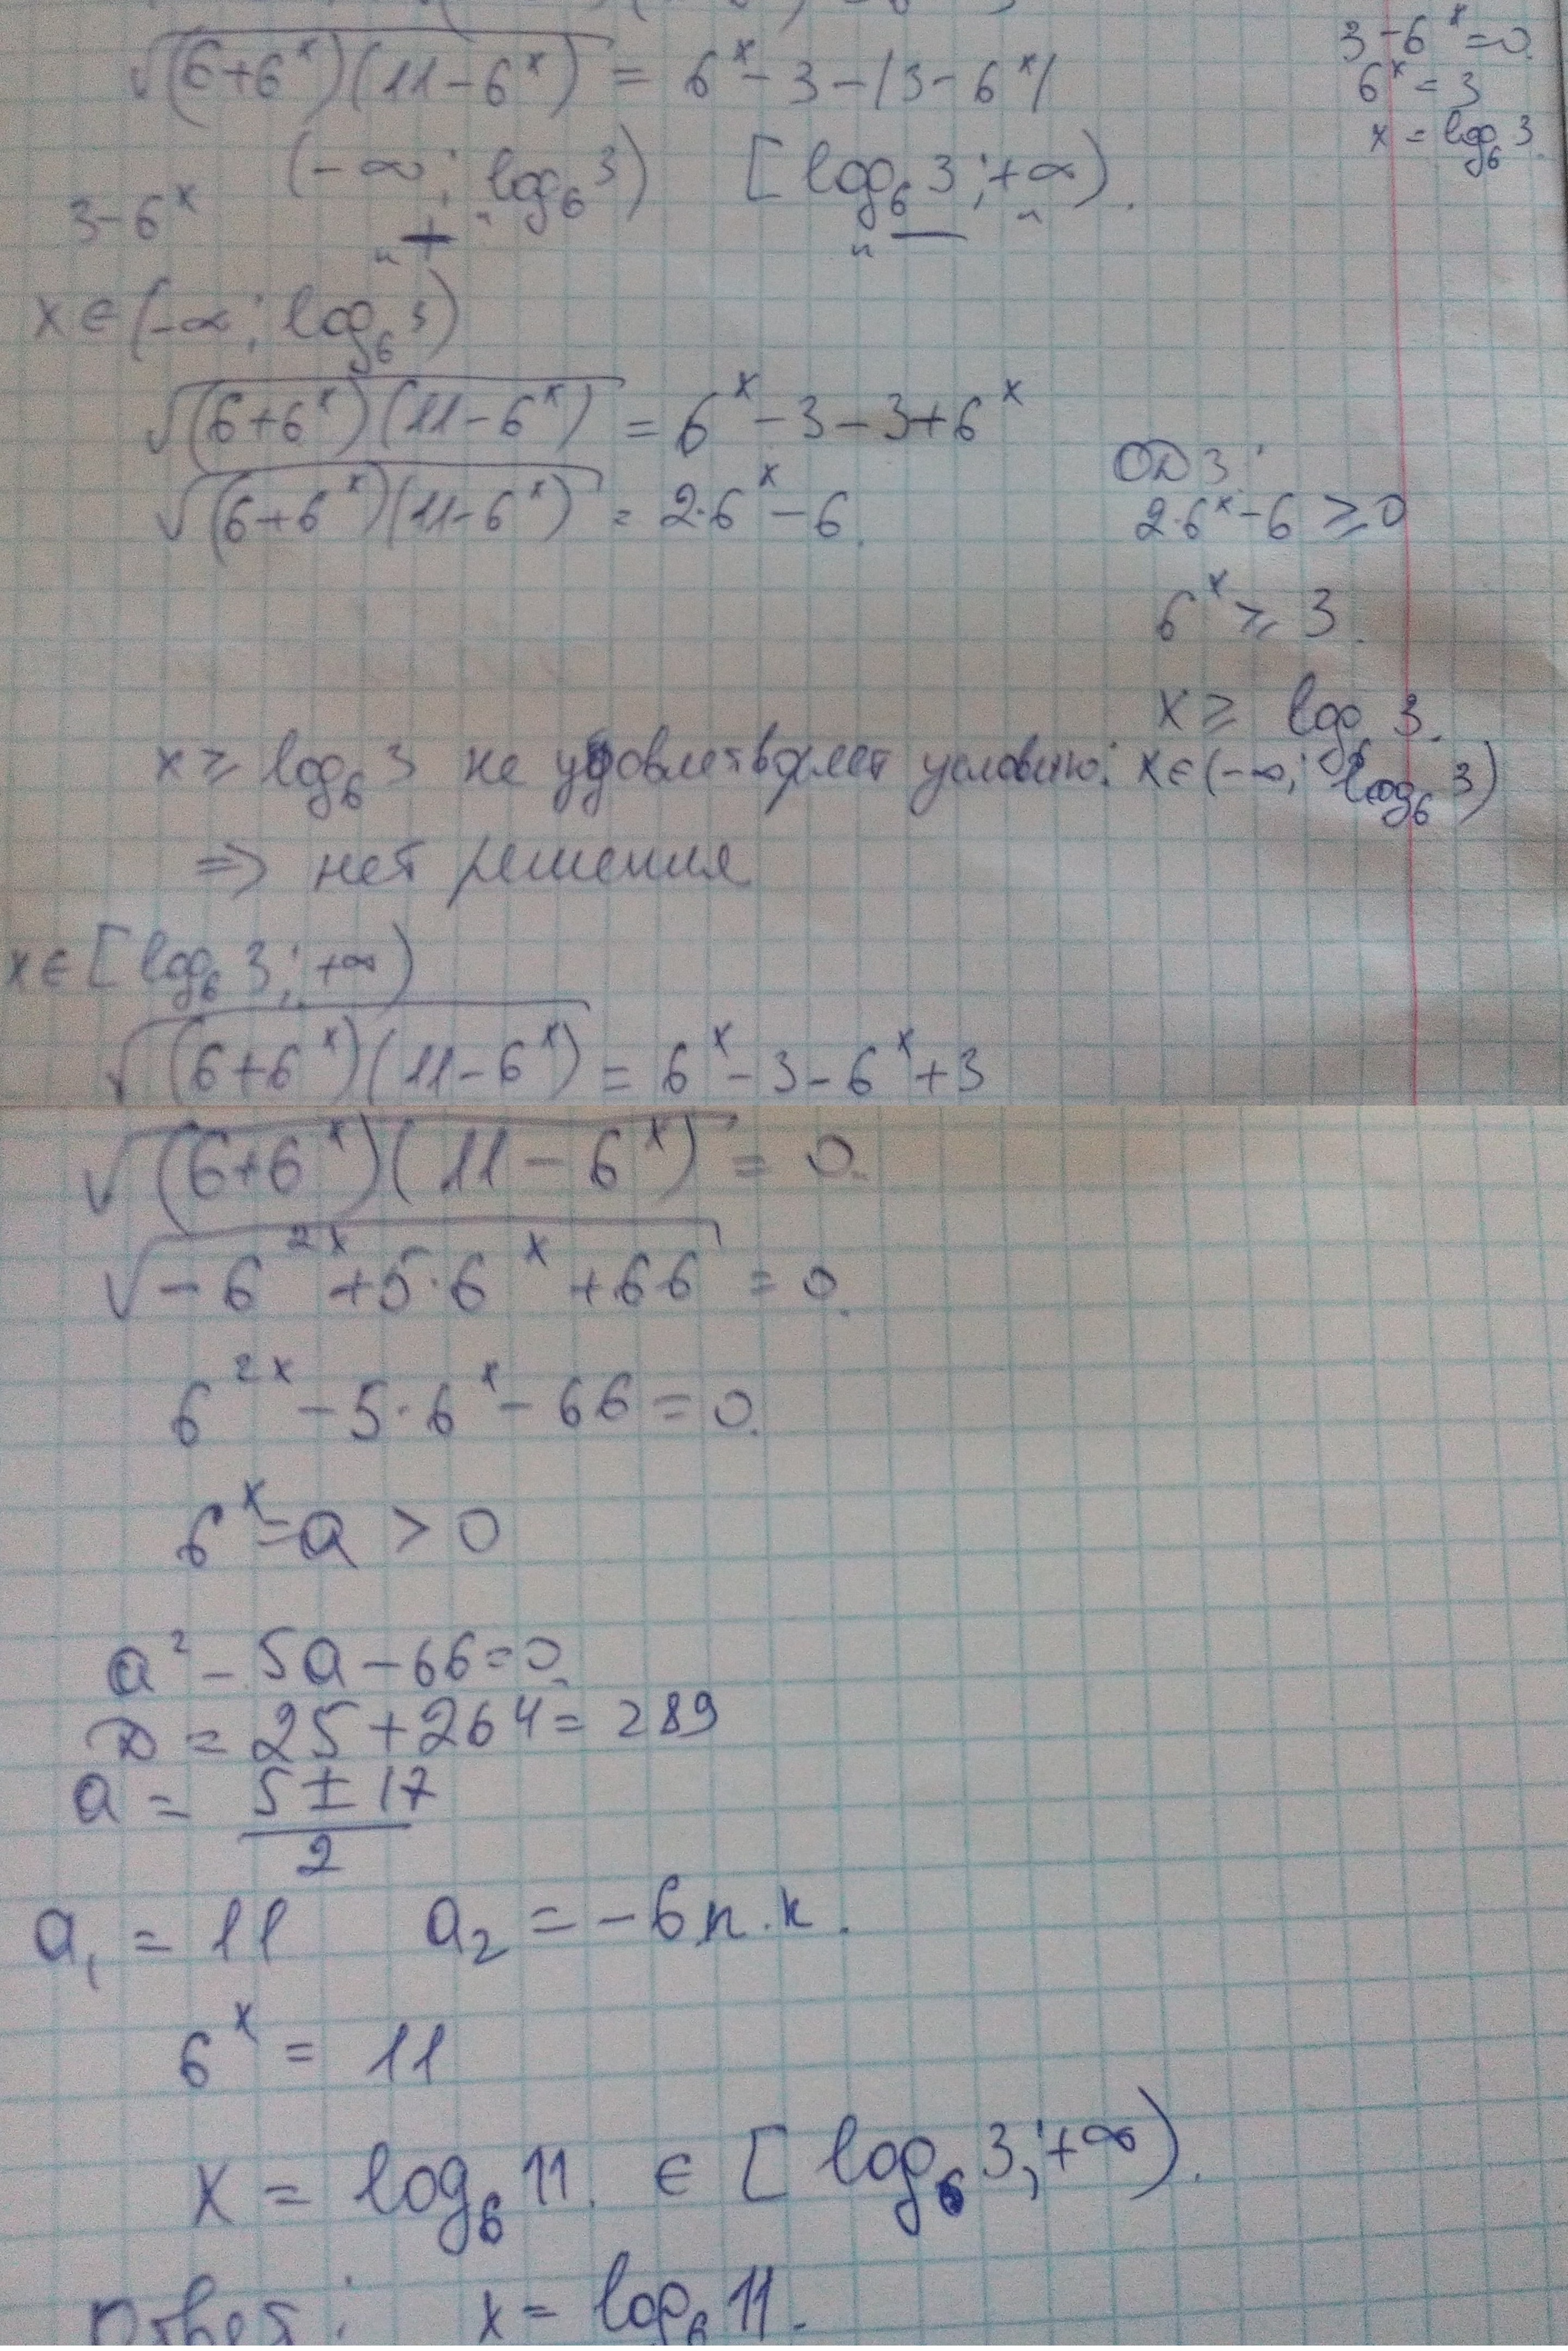 √(6+6^x)(11-6^x) = 6^x - 3 - |3 - 6^x|
3 - 6^x = 0.
6^x = 3
x = log₆ 3.
(-∞; log₆ 3) [log₆ 3; +∞).
3 - 6^x "+" "—"
x ∈ (-∞; log₆ 3)
√(6+6^x)(11-6^x) = 6^x - 3 - 3 + 6^x
√(6+6^x)(11-6^x) = 2·6^x - 6.
ОДЗ:
2·6^x - 6 ⩾ 0
6^x ⩾ 3.
x ⩾ log₆ 3.
x ⩾ log₆ 3 не удовлетворяет условию: x ∈ (-∞; log₆ 3)
⇒ нет решения
x ∈ [log₆ 3; +∞)
√(6+6^x)(11-6^x) = 6^x - 3 - 6^x + 3
√(6+6^x)(11-6^x) = 0.
√-6^2x + 5·6^x + 66 = 0.
6^2x - 5·6^x - 66 = 0.
6^x = a > 0
a² - 5a - 66 = 0.
D = 25 + 264 = 289
a = (5 ± 17)/2
a₁ = 11 a₂ = -6 п.к.
6^x = 11
x = log₆ 11. ∈ [log₆ 3; +∞).
Ответ: x = log₆ 11.